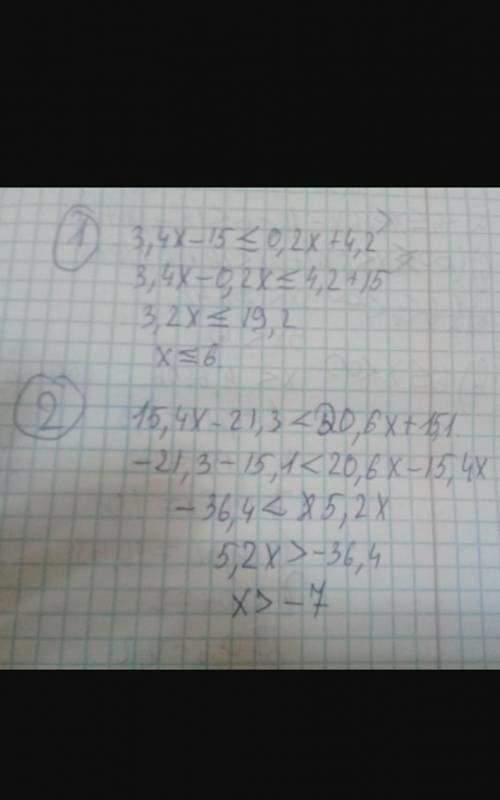 1 3,4x-15≤0,2x+4,2
3,4x-0,2x≤4,2+15
3,2x≤19,2
x≤6
2 15,4x-21,3<20,6x+15,1
-21,3-15,1<20,6x-15,4x
-36,4<5,2x
5,2x>-36,4
x>-7